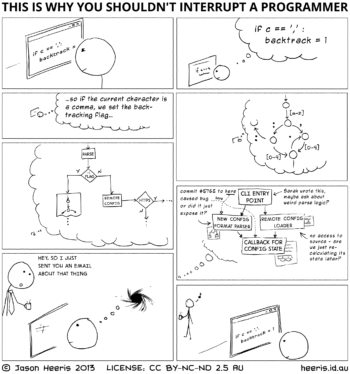 THIS IS WHY YOU SHOULDN'T INTERRUPT A PROGRAMMER
if c == ',':
backtrack = 1
if c == ',' :
backtrack = 1
...so if the current character is
a comma, we set the back-
tracking flag...
[a-z]
[0-9]
[0-9]
PARSE
FLAG
Y
N
REMOTE
CONFIG
HTTPS
Y
N
commit #6765 to here
caused bug
or did it just
expose it?
now
CLI ENTRY
POINT
Sarah wrote this,
maybe ask about
weird parse logic?
NEW CONFIG
FORMAT PARSER
REMOTE CONFIG
LOADER
CALLBACK FOR
CONFIG STATE
no access to
source - are
we just re-
calculating its
state later?
HEY, SO I JUST
SENT YOU AN EMAIL
ABOUT THAT THING
if c == ',':
backtrack = 1
© Jason Heeris 2013 LICENSE: CC BY-NC-ND 2.5 AU heeris.id.au